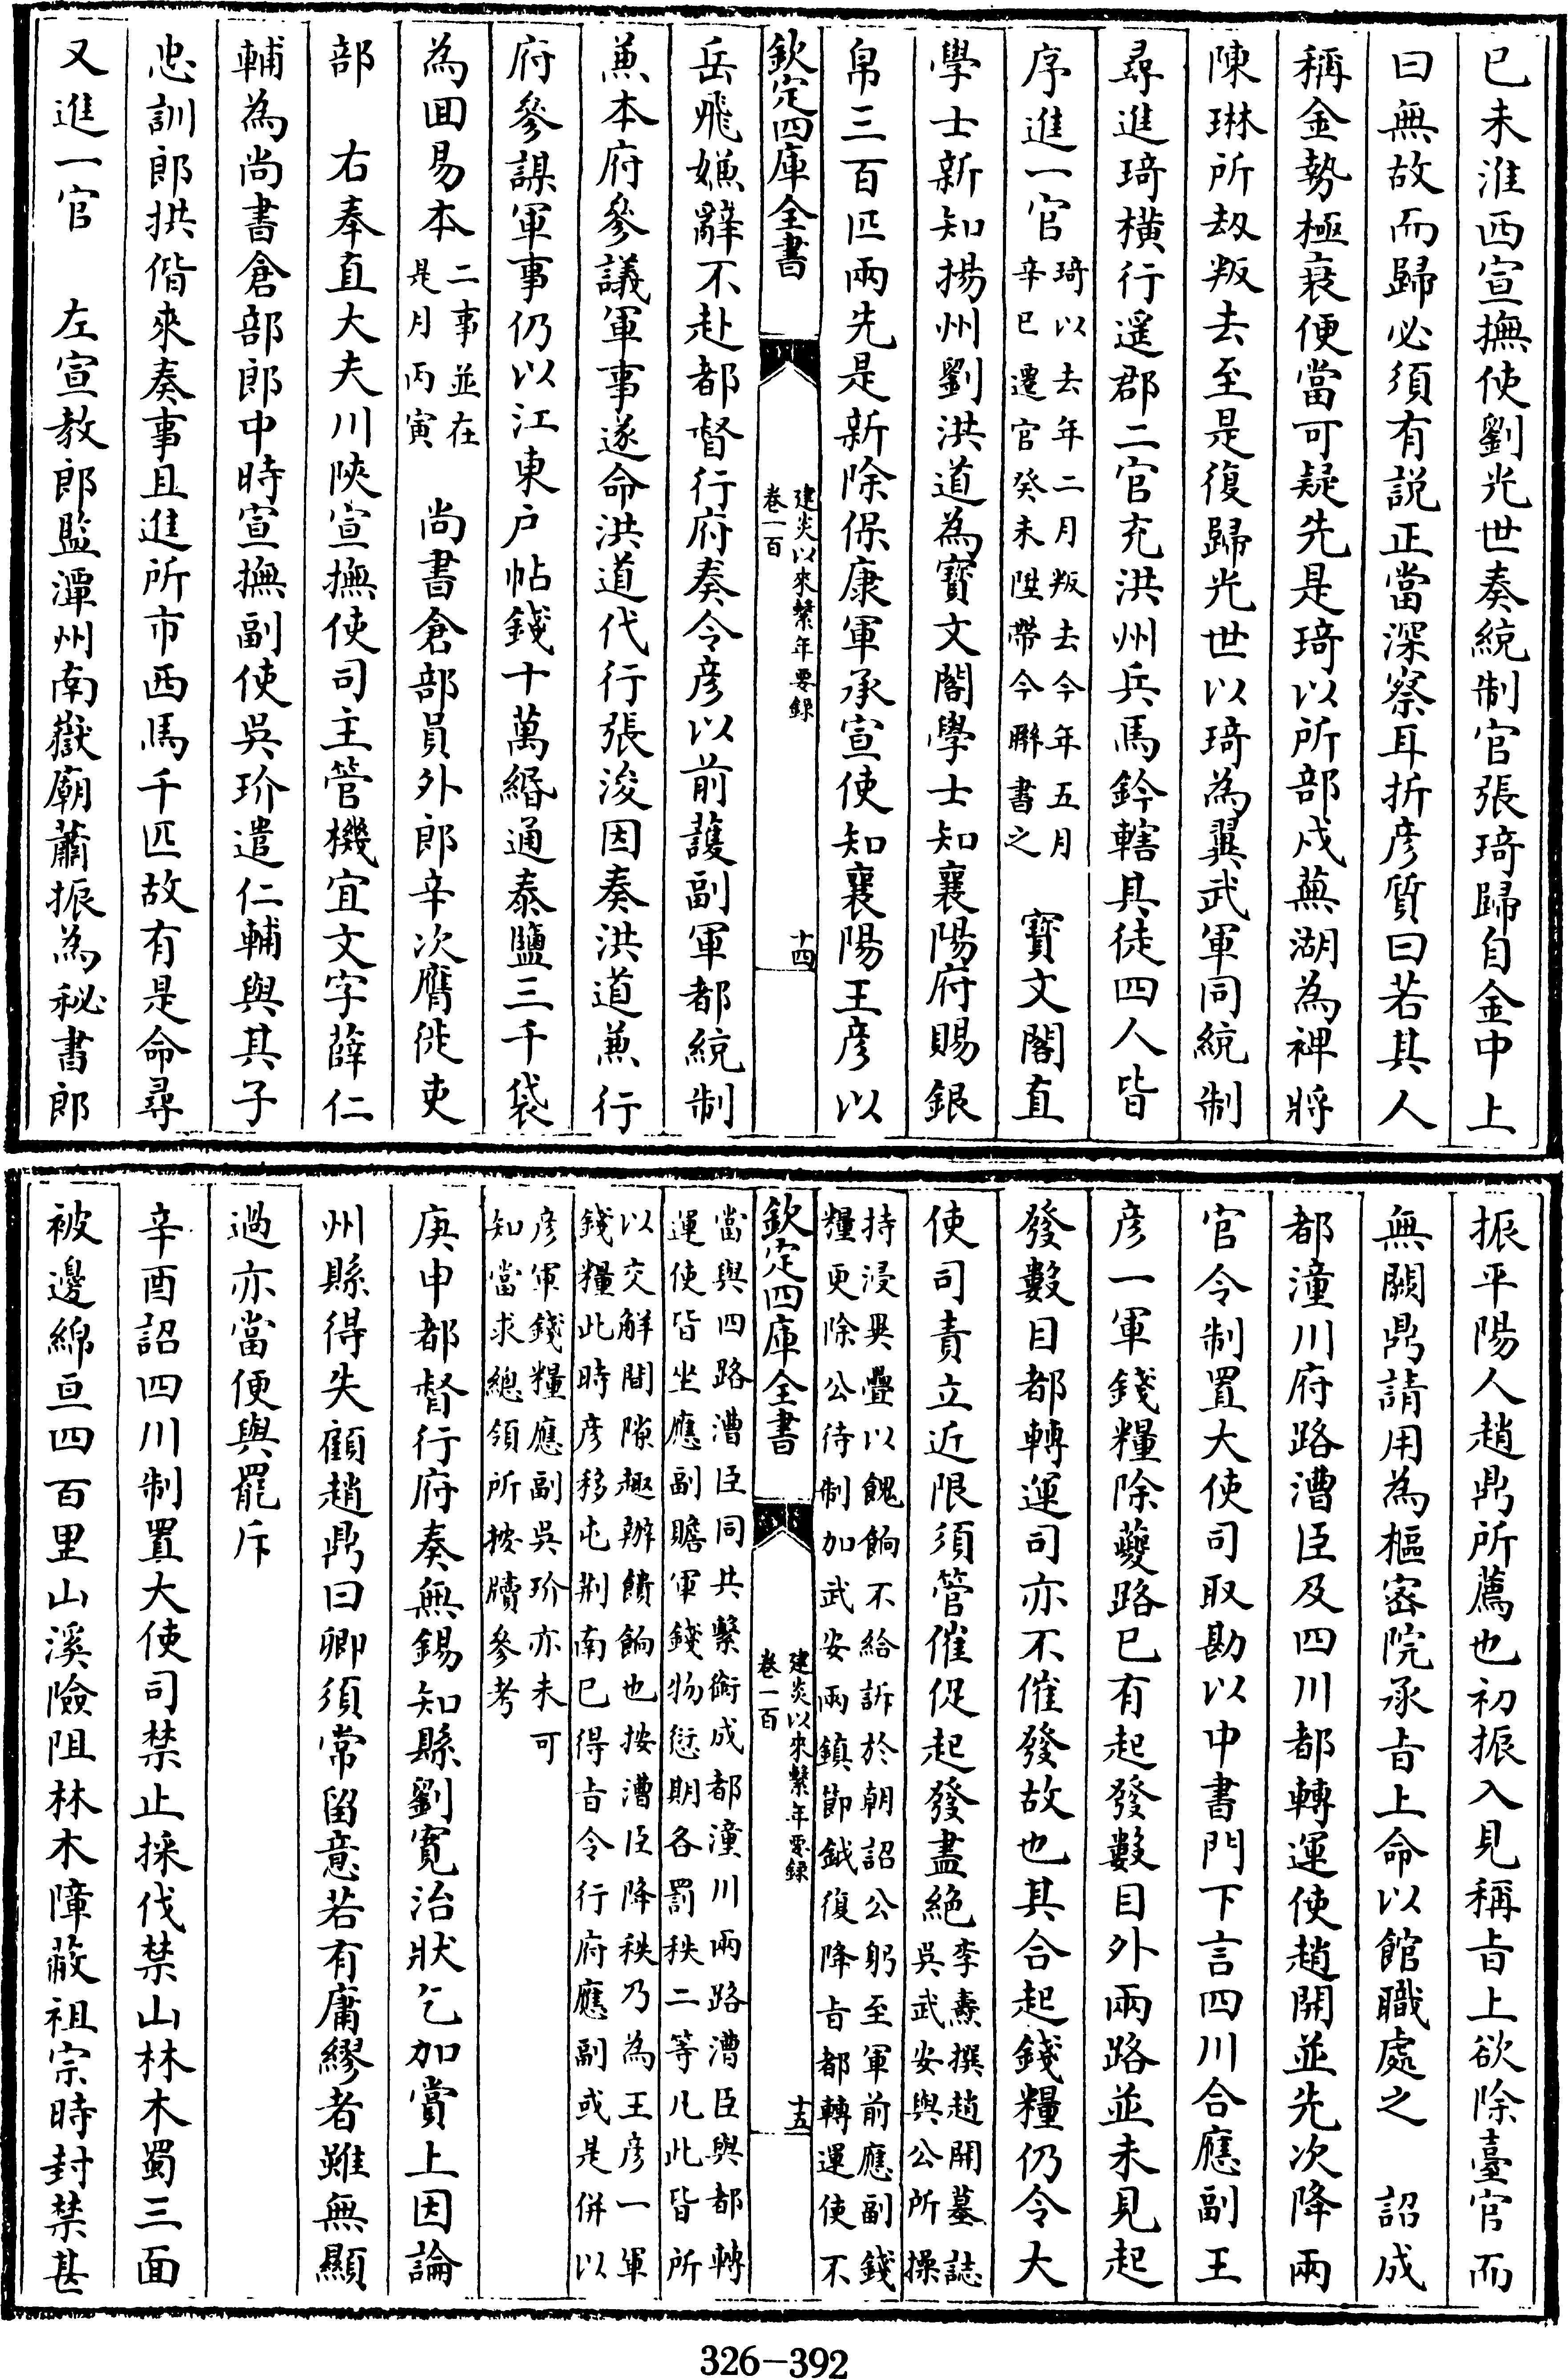 己未淮西宣撫使劉光世奏統制官張琦歸自金中上
曰無故而歸必須有説正當深察耳折彦質曰若其人
稱金勢極衰便當可疑先是琦以所部戍蕪湖為裨將
陳琳所刼叛去至是復歸光世以琦為翼武軍同統制
尋進琦橫行遥郡二官充洪州兵馬鈐轄具徒四人皆
序進一官琦以去年二月叛去今年五月
辛巳遷官癸未陞帶今聨書之　寳文閣直
學士新知揚州劉洪道為寳文閣學士知襄陽府賜銀
帛三百匹兩先是新除保康軍承宣使知襄陽王彦以
欽定四庫全書
建炎以來繫年要録
卷一百
十四
岳飛嫌辭不赴都督行府奏令彦以前護副軍都統制
兼本府參議軍事遂命洪道代行張浚因奏洪道兼行
府參謀軍事仍以江東户帖錢十萬緡通泰鹽三千袋
為回易本二事並在
是月丙寅　尚書倉部員外郎辛次膺徙吏
部　右奉直大夫川陜宣撫使司主管機宜文字薛仁
輔為尚書倉部郎中時宣撫副使吳玠遣仁輔與其子
忠訓郎拱偕來奏事且進所市西馬千匹故有是命尋
又進一官　左宣教郎監潭州南嶽廟蕭振為秘書郎
振平陽人趙鼎所薦也初振入見稱旨上欲除臺官而
無闕鼎請用為樞密院承旨上命以館職處之　詔成
都潼川府路漕臣及四川都轉運使趙開並先次降兩
官令制置大使司取勘以中書門下言四川合應副王
彦一軍錢糧除夔路已有起發數目外兩路並未見起
發數目都轉運司亦不催發故也其合起錢糧仍令大
使司責立近限須管催促起發盡絶李燾撰趙開墓誌
吳武安與公所操
持浸異疊以餽餉不給訴於朝詔公躬至軍前應副錢
糧更除公待制加武安兩鎮節鉞復降旨都轉運使不
欽定四庫全書
建炎以來繫年要録
卷一百
十五
當與四路漕臣同共繫銜成都潼川兩路漕臣與都轉
運使皆坐應副贍軍錢物愆期各罰秩二等凡此皆所
以交解間隙趣辦饋餉也按漕臣降秩乃為王彦一軍
錢糧此時彦移屯荆南已得旨令行府應副或是併以
彦軍錢糧應副吳玠亦未可
知當求總領所按牘參考
庚申都督行府奏無錫知縣劉寛治狀乞加賞上因論
州縣得失顧趙鼎曰卿須常留意若有庸繆者雖無顯
過亦當便與罷斥
辛酉詔四川制置大使司禁止採伐禁山林木蜀三面
被邊綿亘四百里山溪險阻林木障蔽祖宗時封禁甚
326-392